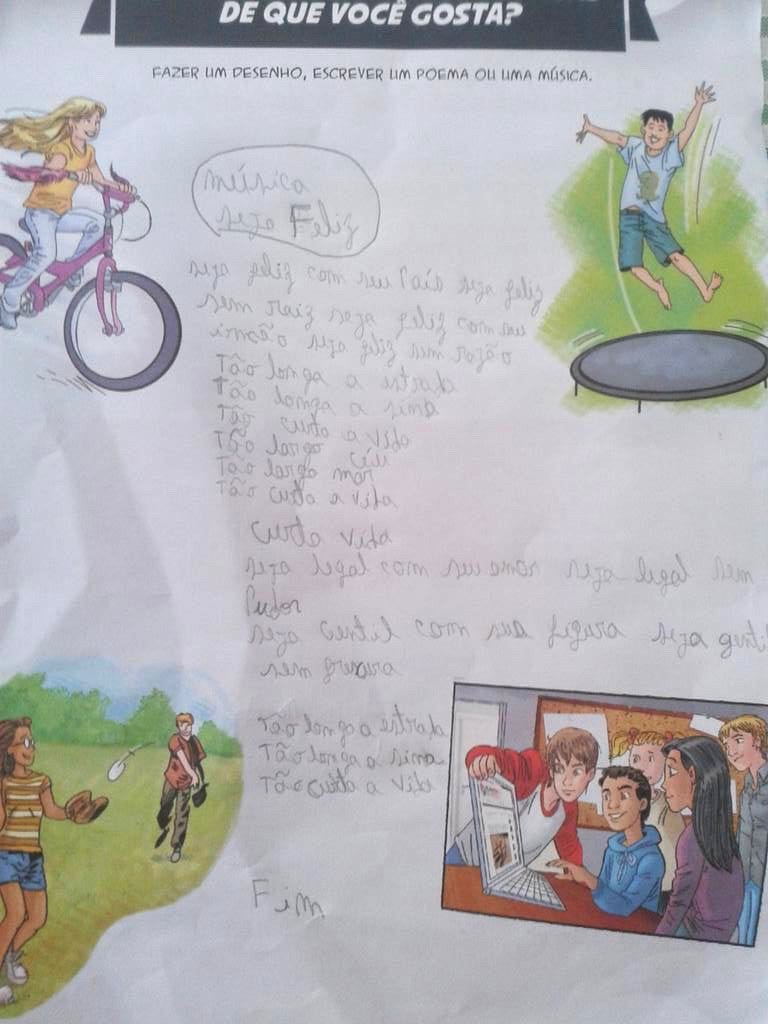 DE QUE VOCÊ GOSTA?
FAZER UM DESENHO, ESCREVER UM POEMA OU UMA MÚSICA.
música
seja Feliz
seja feliz com seu País seja feliz
sem raiz seja feliz com seu
irmão seja feliz sem razão
Tão longa a estrada
Tão longa a sina
Tão curta a vida
Tão largo céu
Tão largo mar
Tão curta a vida
curta vida
seja legal com seu amor seja legal sem
Pudor
seja gentil com sua figura seja gentil
sem fresura
Tão longa a estrada
Tão longa a sina
Tão curta a vida
Fim